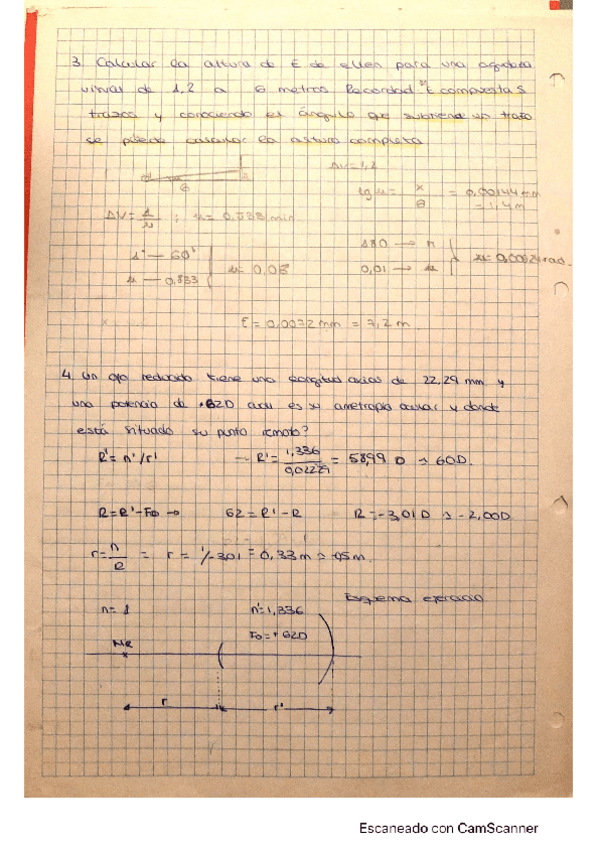 3. Calcular la altura de E de ellen para una agudeza
visual de 1,2 a 6 metros Recordad "E compuesta 5
trazos y conociendo el ángulo que subtiende un trazo
se puede calcular la altura completa
AV=1,2
tg u = x/6 = 0,00144 mm
= 1,4 m
6
AV = 1/u ; u = 0,833 min
1° — 60'
u — 0,833
u = 0,05
180 → π
0,01 → u
u = 0,00024 rad.
E = 0,0072 mm = 7,2 m.
4. Un ojo reducido tiene una longitud axial de 22,29 mm y
una potencia de +62D cual es su ametropia ocular y donde
está situado su punto remoto?
R' = n'/r' → R' = 1,336/0,02229 = 58,99 D → 60D.
R = R' - Fo → 62 = R' - R R = -3,01 D → -2,00D
r = n/R = r = 1/-3,01 = 0,33m → 0,5 m.
Esquema ejercicio
n = 1 n' = 1,336
Fo = +62D
MR
r r'
Escaneado con CamScanner